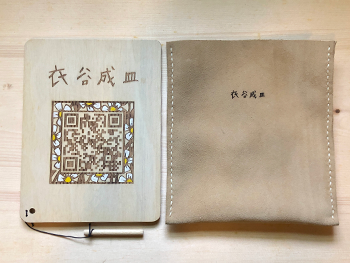 衣谷成皿
衣谷成皿